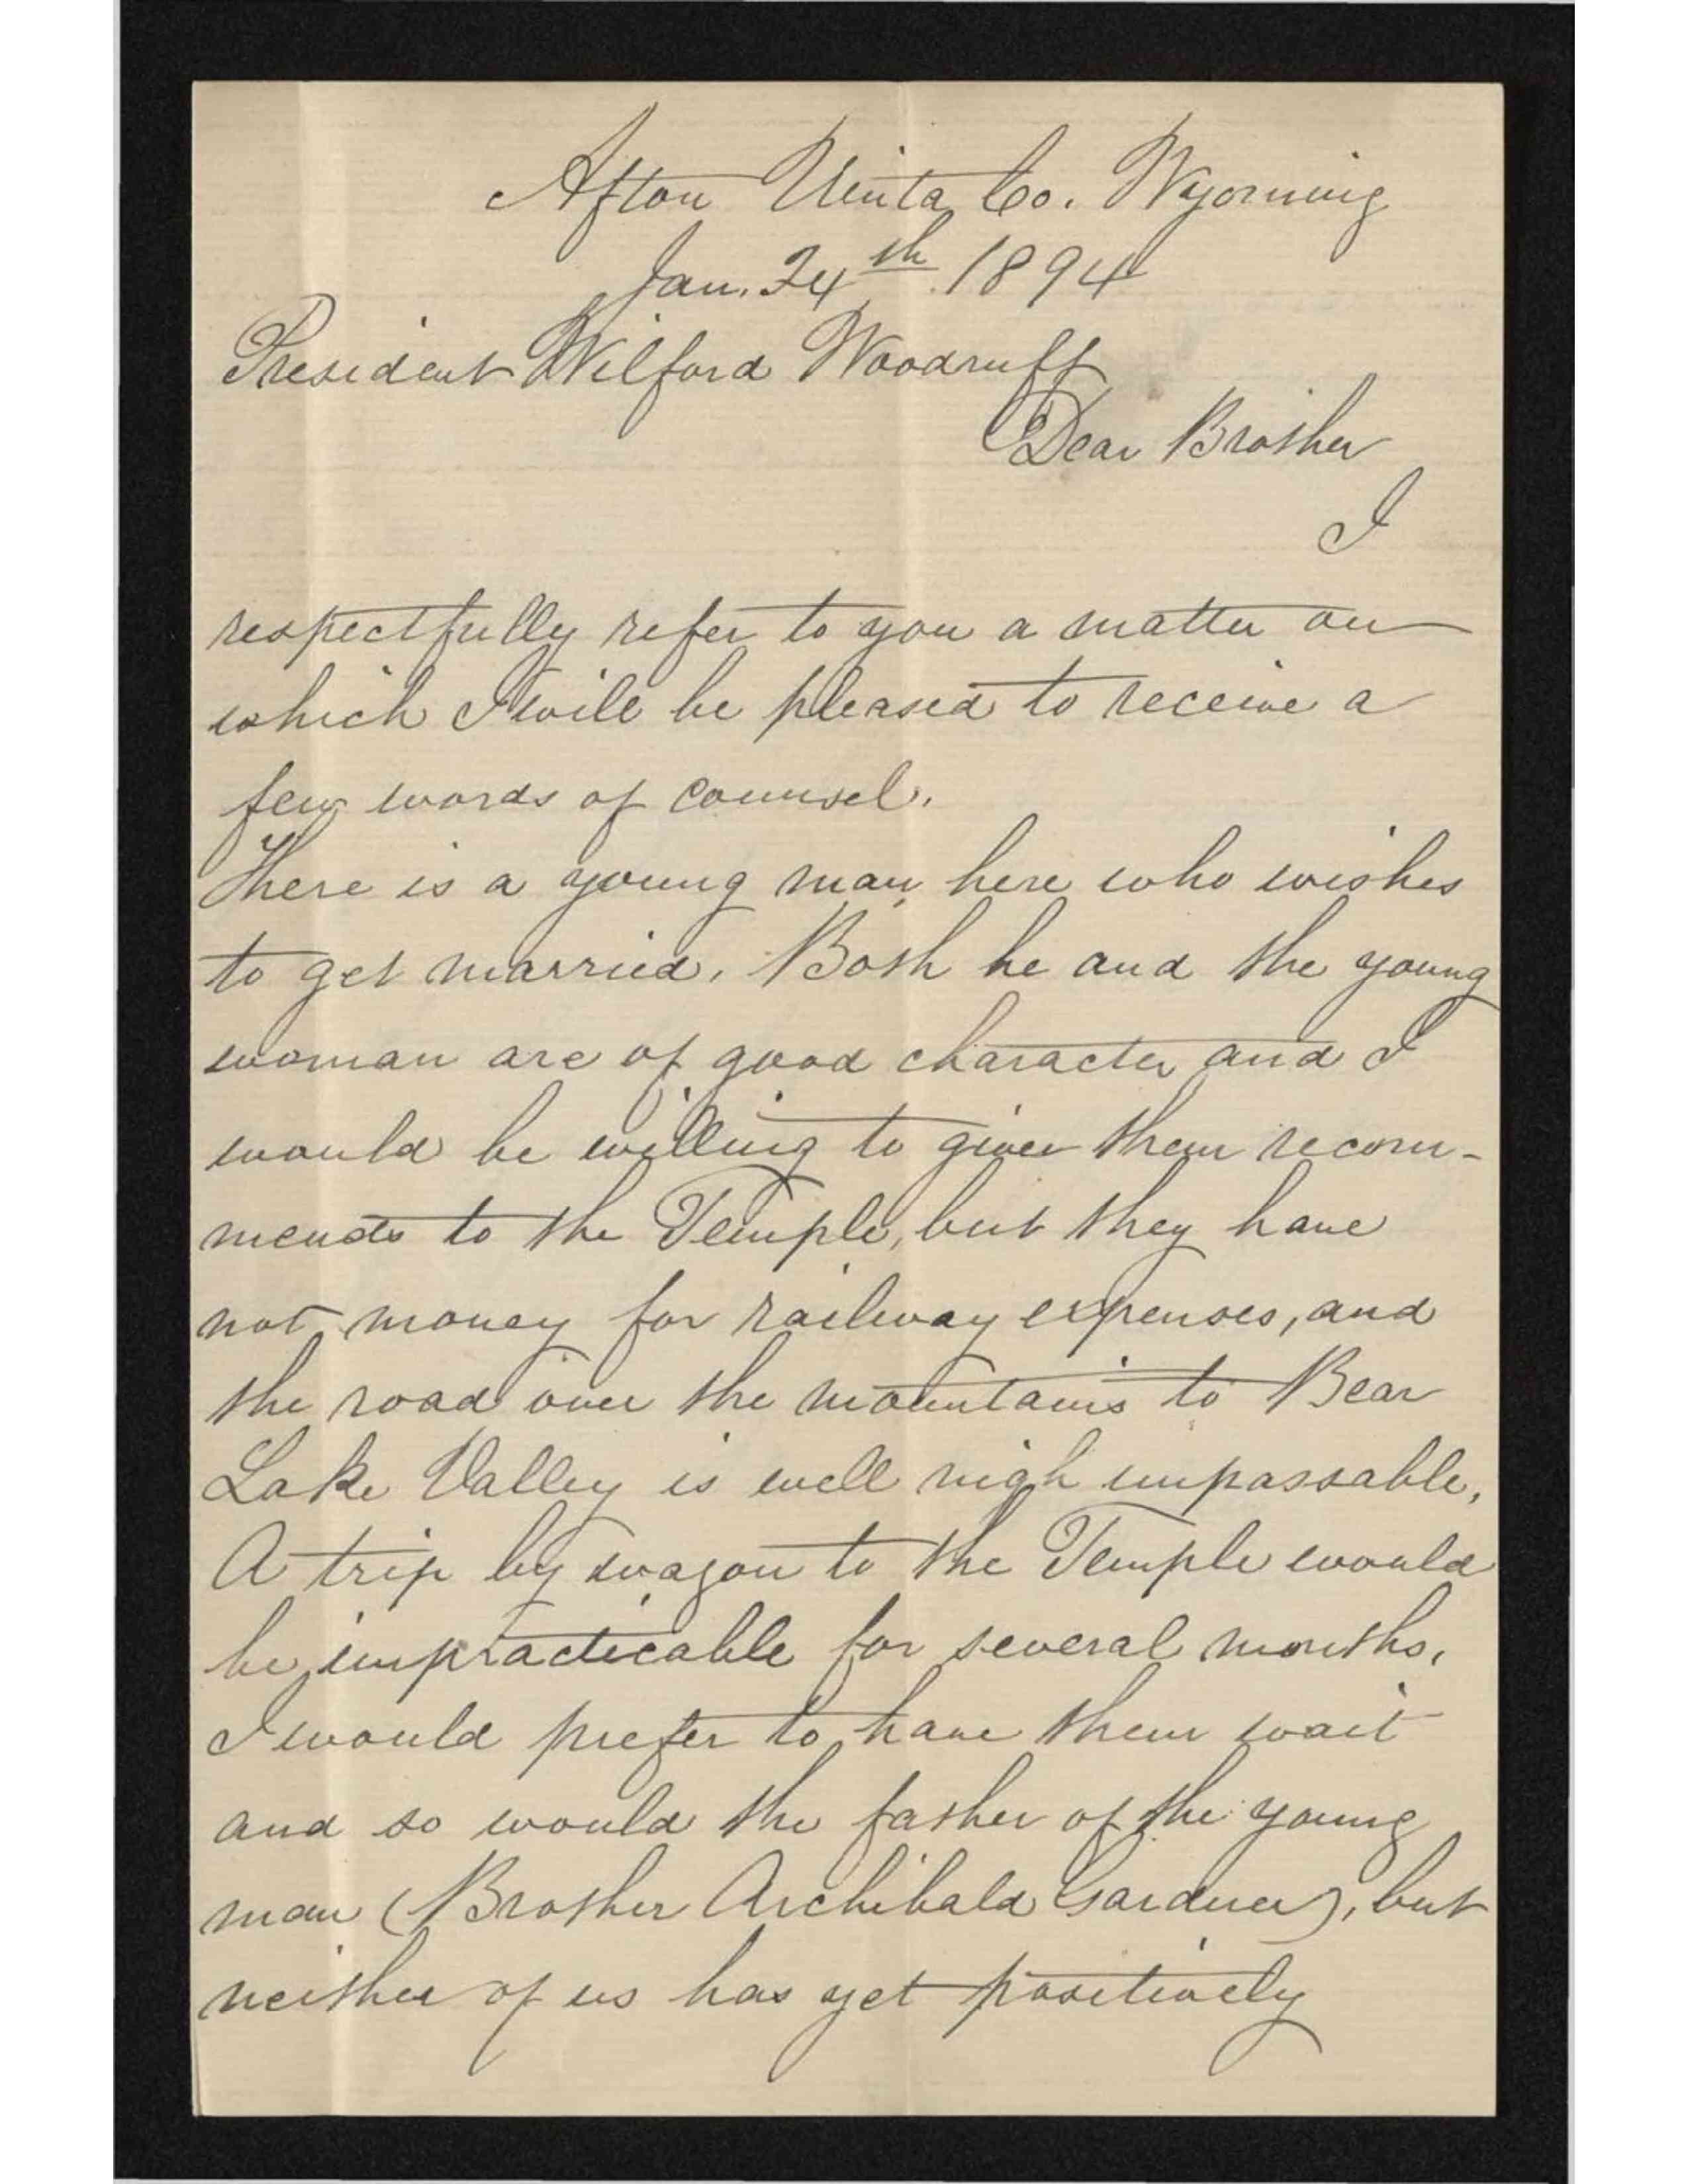 Afton Uinta Co. Wyoming
Jan. 24th 1894
President Wilford Woodruff
Dear Brother
I
respectfully refer to you a matter on
which I will be pleased to receive a
few words of counsel.
There is a young man here who wishes
to get married. Both he and the young
woman are of good character and I
would be willing to give them recom-
mends to the Temple, but they have
not money for railway expenses, and
the road over the mountains to Bear
Lake Valley is well nigh impassable.
A trip by wagon to the Temple would
be impracticable for several months.
I would prefer to have them wait
and so would the father of the young
man (Brother Archibald Gardner), but
neither of us has yet positively